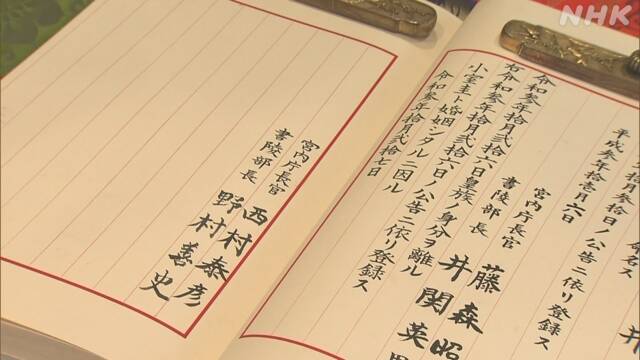 NHK
拾月参拾日ノ公告ニ依リ登録ス
平成参年拾壱月六日
宮内庁長官 藤森昭
書陵部長 井関英
令和参年拾月弐拾六日皇族ノ身分ヲ離ル
小室圭ト婚姻シタルニ因ル
右令和参年拾月弐拾六日ノ公告ニ依リ登録ス
令和参年拾月弐拾七日
宮内庁長官 西村泰彦
書陵部長 野村善史